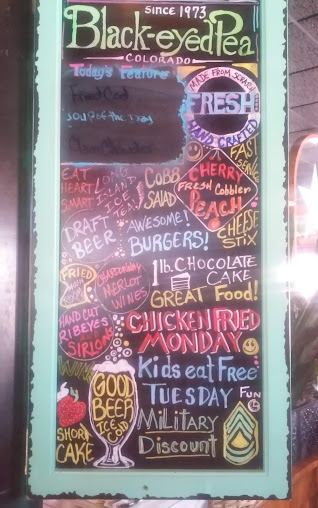 since 1973
Black-eyed Pea
COLORADO
Today's Feature
Fried Cod
Soup of the Day
Clam Chowder
MADE FROM SCRATCH
FRESH
HAND CRAFTED
FAST
SERVICE
EAT
HEART
SMART
LONG
ISLAND
ICE
TEA
COBB
SALAD
CHERRY
FRESH Cobbler
PEACH
CHEESE
STIX
DRAFT
BEER
AWESOME!
BURGERS!
FRIED
CHARDONNAY
MERLOT
WINES
1 lb. CHOCOLATE
CAKE
GREAT Food!
HAND CUT
RIBEYES
SIRLOINS
CHICKEN FRIED
MONDAY
Kids eat Free
TUESDAY
FUN
GOOD
BEER
ICE
COLD
SHORT
CAKE
Military
Discount